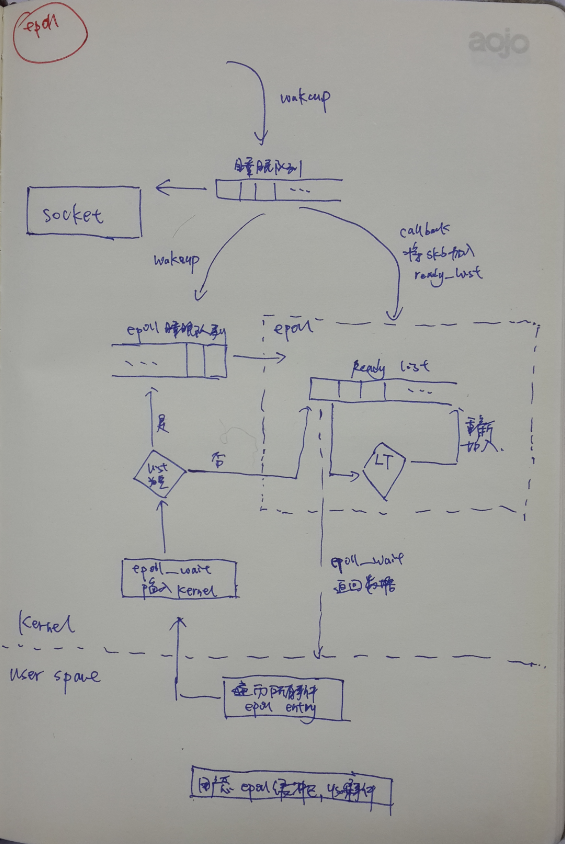 epoll
aojo
wakeup
睡眠队列
...
socket
callback
将skb加入
ready_list
wakeup
epoll 睡眠队列
epoll
...
Ready list
...
是
否
list
为空
LT
重新
加入.
epoll_wait
陷入 kernel
epoll_wait
返回数据
Kernel
user space
遍历所有事件
epoll entry
用户态 epoll缓冲区,